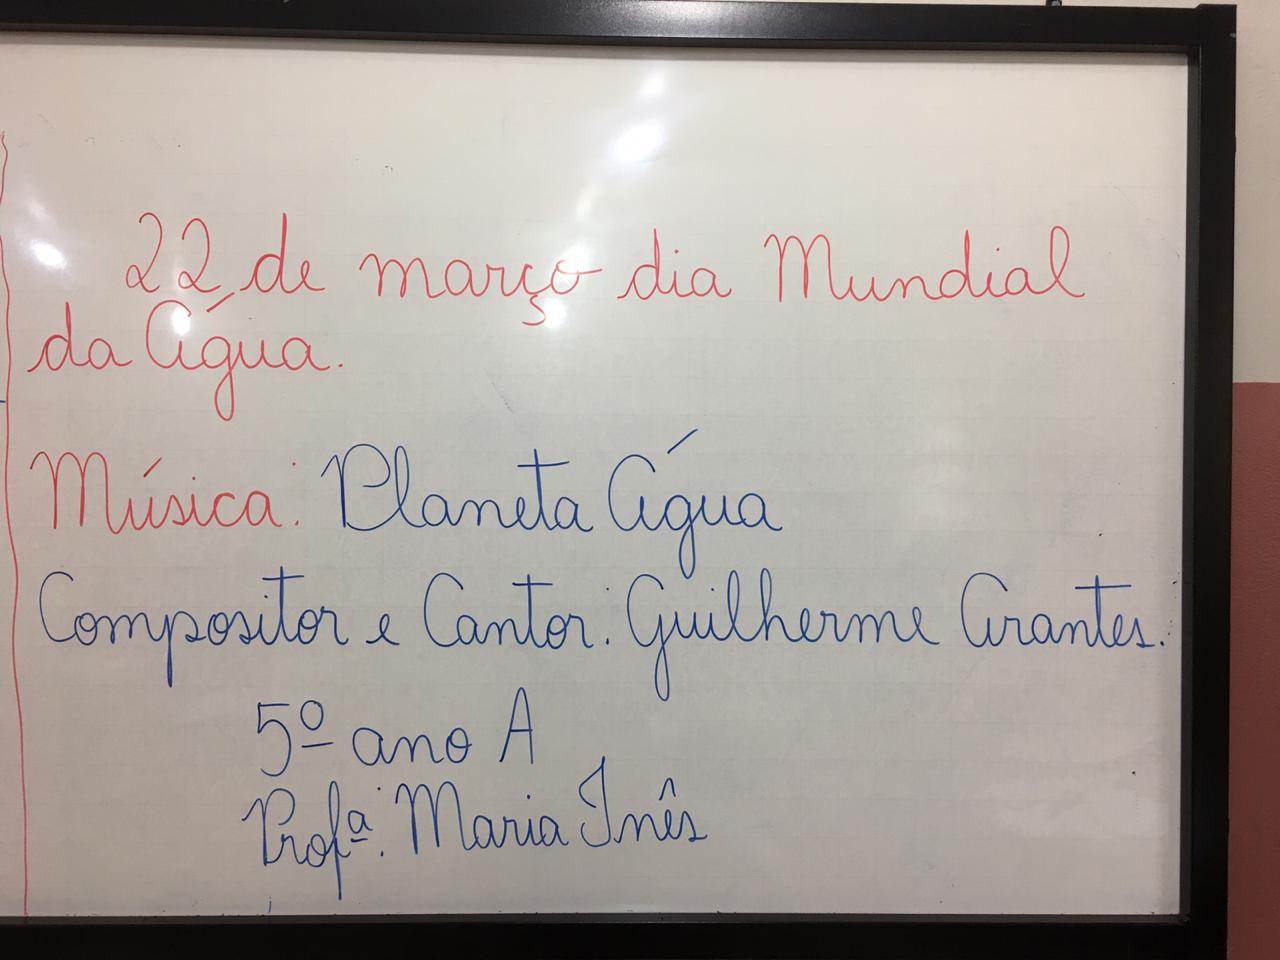 22 de março dia Mundial
da Água.
Música: Planeta Água
Compositor e Cantor: Guilherme Arantes.
5º ano A
Profª: Maria Inês